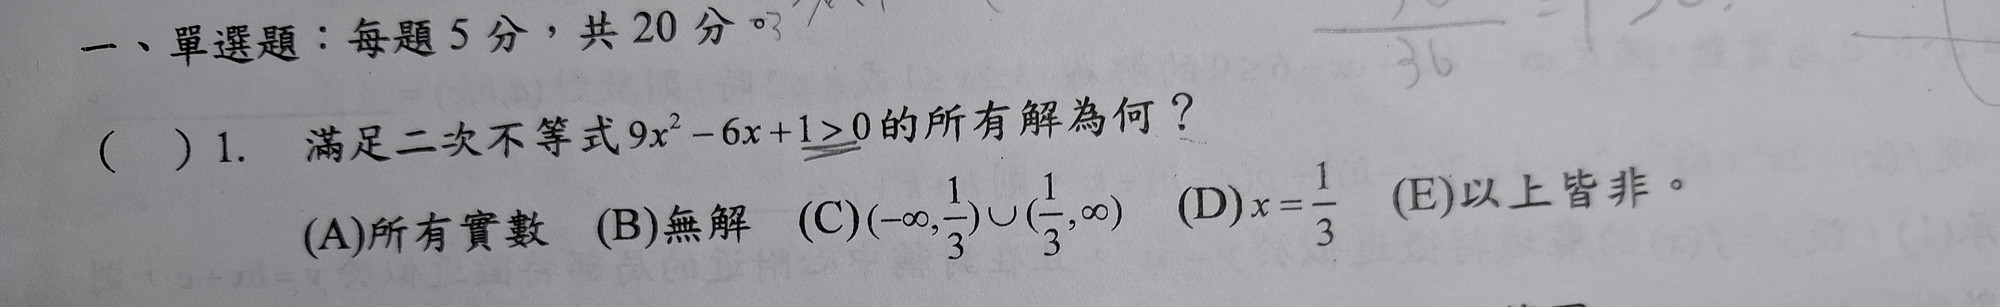 一、單選題：每題 5 分，共 20 分。
36
( ) 1. 滿足二次不等式 9x² − 6x + 1 ≥ 0 的所有解為何？
(A)所有實數 (B)無解 (C)(−∞, 1/3)∪(1/3, ∞) (D) x = 1/3 (E)以上皆非。